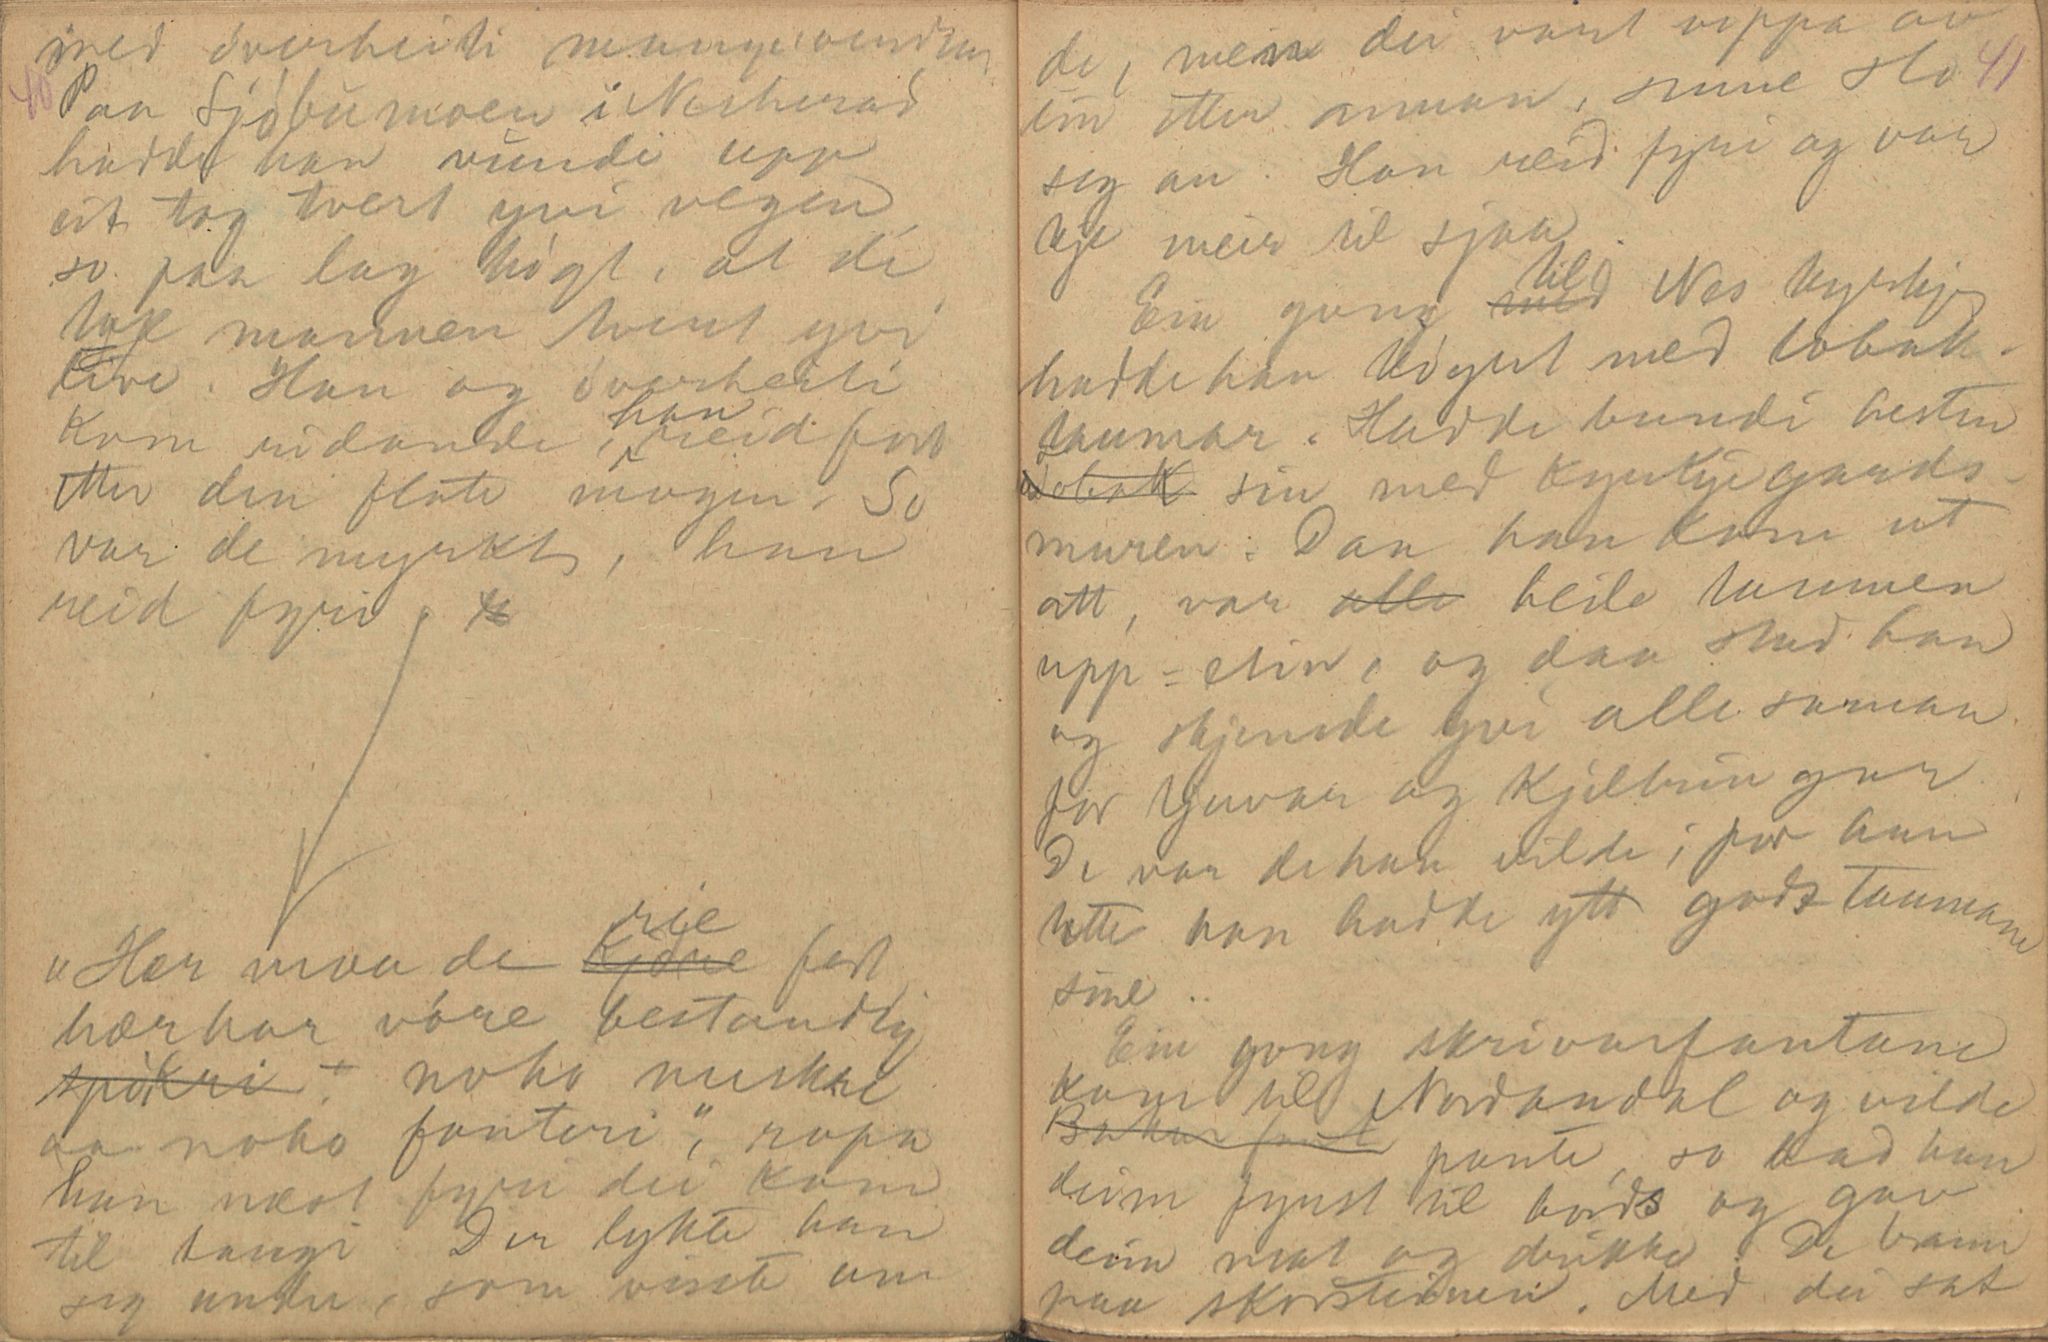 40
med överheiti mange vendur
Paa Sjöbumoen i Nesherad
hadde han vundi upp
eit tog tvert yvi vegen
so paa lag högt, at di
tok mannen tvert yvi
live. Han og överheiti
kom ridande, han reid fort
etter den flate mogen. So
var de myrkt, han
reid fyri.
"Her maa de kjöre rie fort
hær har vöre bestandig
spökri + noko nuskri
aa noko fanteri", ropa
han næst fyri dei kom
til taugi. Der lykte han
seg undu, som visste um
41
de, men dei vart vippa av
ein etter annan, sume slo
seg an. Han reid fyri og var
kje meir til sjaa.
Ein gong med til Nes kyrkje
hadde han köyrt med tobak-
taumar. Hadde bundi hesten
tobak sin med kyrkjegards-
muren. Daa han kom ut
att, var alle heile taumen
upp-etin, og daa stod han
og skjende yvi alle saman
for tjuvar og kjeltringar
De var de han vilde, for han
lette han hadde ytt gods taumane
sine..
Ein gong skrivarfantane
kom til Nordandal og vilde
pante, so bad han
deim fyrst til bords og gav
deim mat og drikke. De brann
paa skorsteinen. Med dei sat